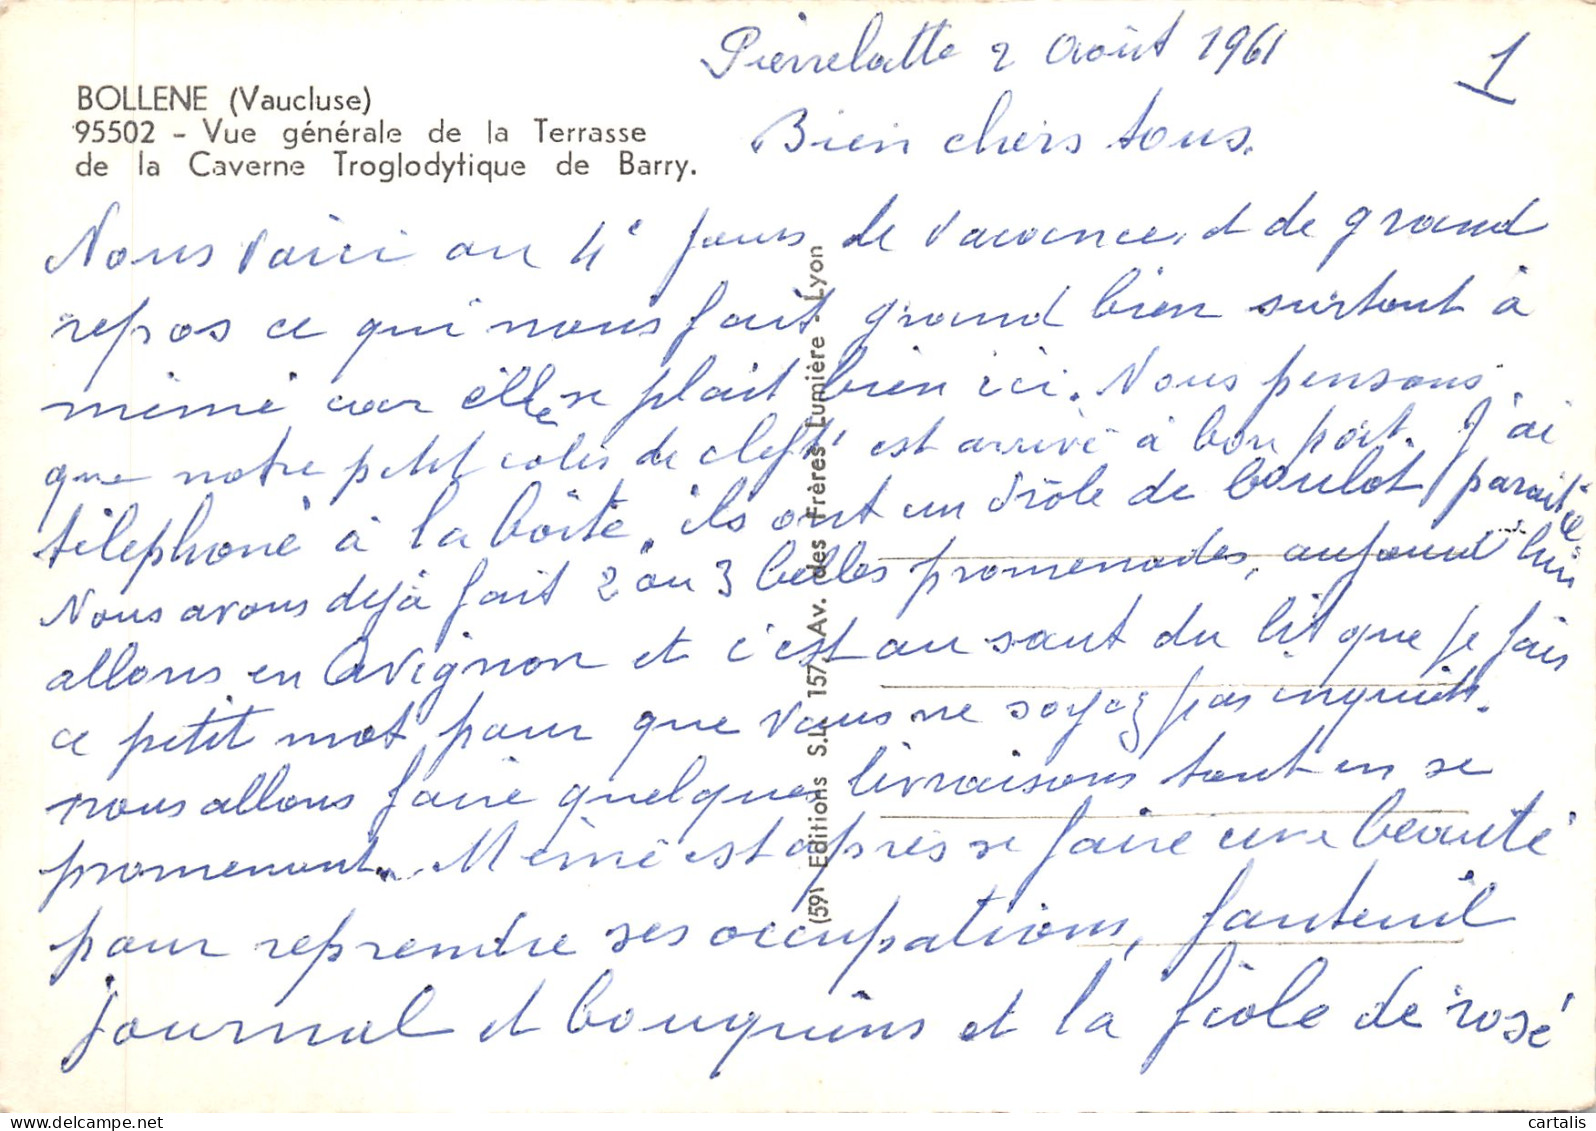 Pierrelatte 2 Août 1961
1
BOLLENE (Vaucluse)
95502 - Vue générale de la Terrasse
de la Caverne Troglodytique de Barry.
Bien chers tous.
Nous voici au 4e jours de vacance, et de grand
repos ce qui nous fait grand bien surtout à
mémé car elle se plait bien ici. Nous pensons
que notre petit colis de clefs est arrivé à bon port. J'ai
téléphoné à la boîte, ils ont un drôle de boulot parait il.
Nous avons déjà fait 2 ou 3 belles promenades, aujourd'hui
allons en Avignon et c'est au saut du lit que je fais
ce petit mot pour que vous ne soyez pas inquiets.
nous allons faire quelques livraisons tout en se
promenant. Mémé est après se faire une beauté
pour reprendre ses occupations, fauteuil
journal et bouquins et la fiole de rosé
(59) Editions S.L. 157, Av. des Frères Lumière - Lyon
cartalis
www.delcampe.net